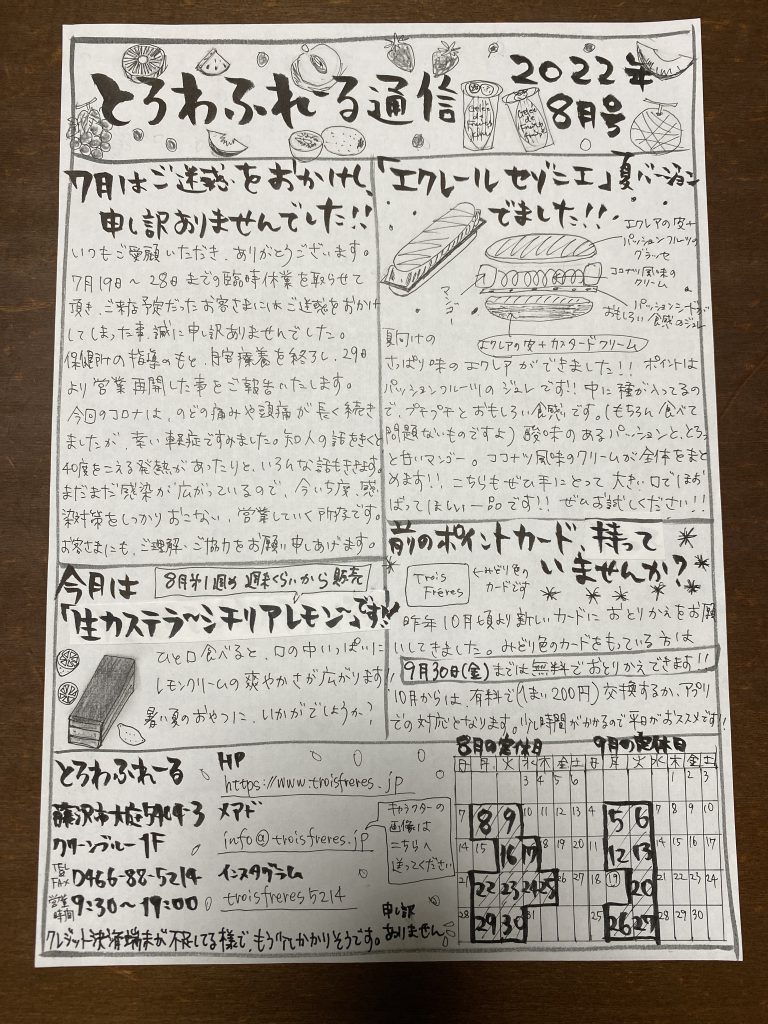 とろわふれーる通信
2022年
8月号
7月はご迷惑をおかけし、
申し訳ありませんでした!!
いつもご愛顧いただき、ありがとうございます。
7月19日〜28日までの臨時休業を取らせて
頂き、ご来店予定だったお客さまにはご迷惑をおかけ
してしまった事、誠に申し訳ありませんでした。
保健所の指導のもと、自宅療養を終了し、29日
より営業再開した事をご報告いたします。
今回のコロナは、のどの痛みや頭痛が長く続き
ましたが、幸い軽症ですみました。知人の話をきくと
40度をこえる発熱があったりと、いろんな話もききます。
まだまだ感染が広がっているので、今いち度、感
染対策をしっかりおこない、営業していく所存です。
お客さまにも、ご理解・ご協力をお願い申しあげます。
「エクレールセゾニエ」夏バージョン
でました!!
エクレアの皮+
パッションフルーツの
グラッセ
ココナツ風味の
クリーム
マンゴー
パッションシードが
おもしろい食感のジュレ
エクレアの皮+カスタードクリーム
夏向けの
さっぱり味のエクレアができました!! ポイントは
パッションフルーツのジュレです!! 中に種が入ってるの
で、プチプチとおもしろい食感です。(もちろん食べて
問題ないものですよ) 酸味のあるパッションと、とろっ
と甘いマンゴー。ココナツ風味のクリームが全体をまと
めます!! こちらもぜひ手にとって大きい口でほお
ばってほしい一品です!! ぜひお試しください!!
今月は
8月第1週の週末くらいから販売
「生カステラ〜シチリアレモン〜」です!!
ひと口食べると、口の中いっぱいに
レモンクリームの爽やかさが広がります!!
暑い夏のおやつに、いかがでしょうか?
前のポイントカード、持って
いませんか?
Trois
Frères
←みどり色の
カードです
昨年10月頃より新しいカードにおとりかえをお願
いしてきました。みどり色のカードをもっている方は
9月30日(金)までは無料でおとりかえできます!!
10月からは、有料で(1まい200円)交換するか、アプリ
での対応となります。少し時間がかかるので平日がおススメです!!
とろわふれーる
藤沢市大庭5404-3
クリーンブルー1F
TEL
FAX 0466-88-5214
営業
時間 9:30〜19:00
HP
https://www.troisfreres.jp
メアド
info@troisfreres.jp
インスタグラム
troisfreres5214
キャラクターの
画像は
こちらへ
送ってください
クレジット決済端末が不足してる様で、もう少しかかりそうです。
申し訳
ありません
8月の定休日
日 月 火 水 木 金 土
3 4 5 6
7 8 9 10 11 12 13
14 15 16 17 18 19 20
21 22 23 24 25 26 27
28 29 30 31
9月の定休日
日 月 火 水 木 金 土
1 2 3
4 5 6 7 8 9 10
11 12 13 14 15 16 17
18 19 20 21 22 23 24
25 26 27 28 29 30